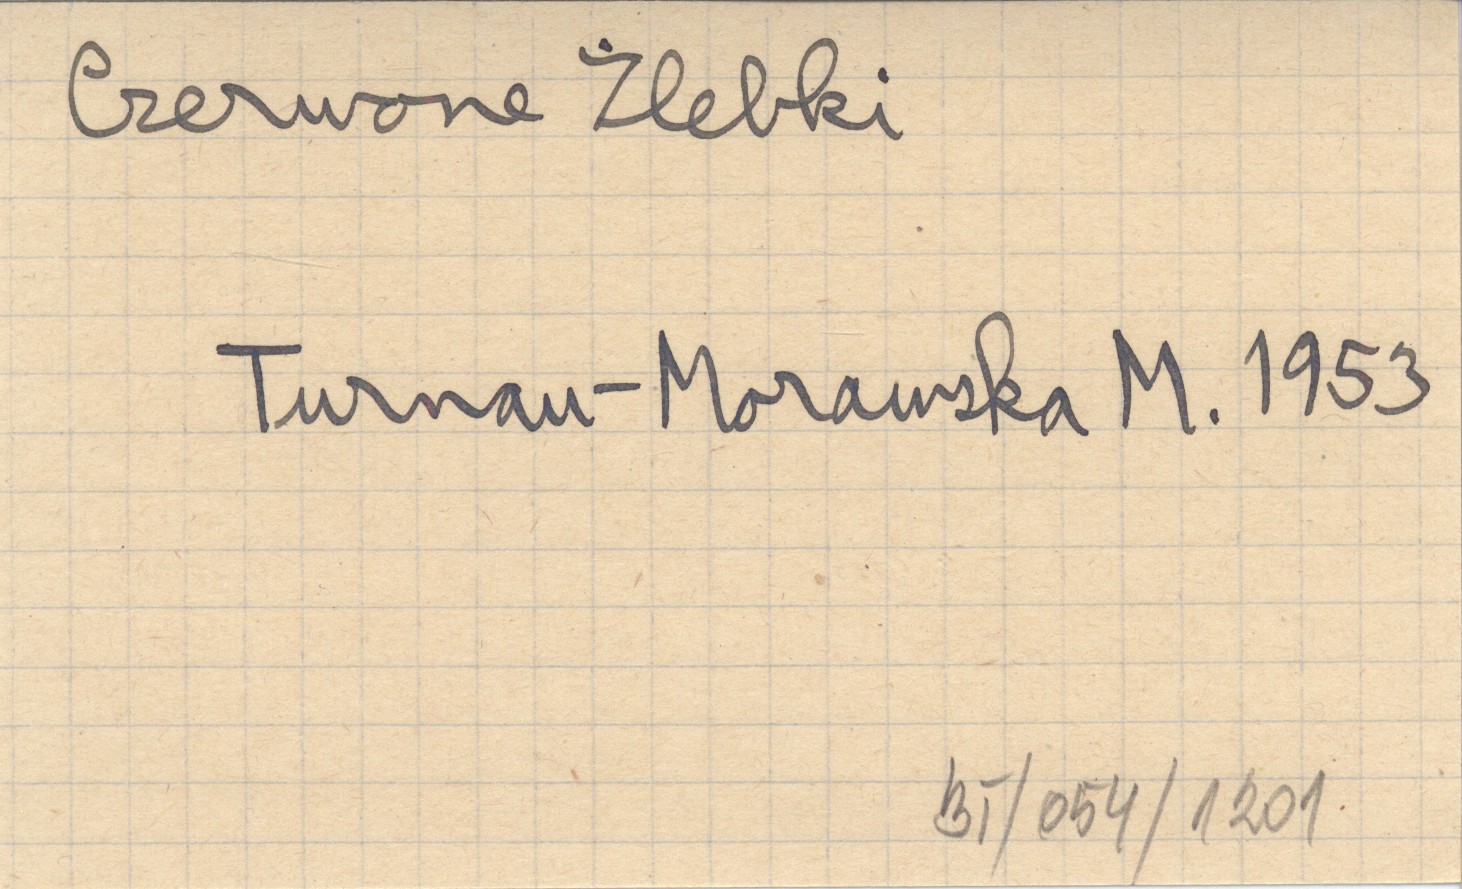 Czerwone Żlebki
Turnau-Morawska M. 1953
BT/054/1201